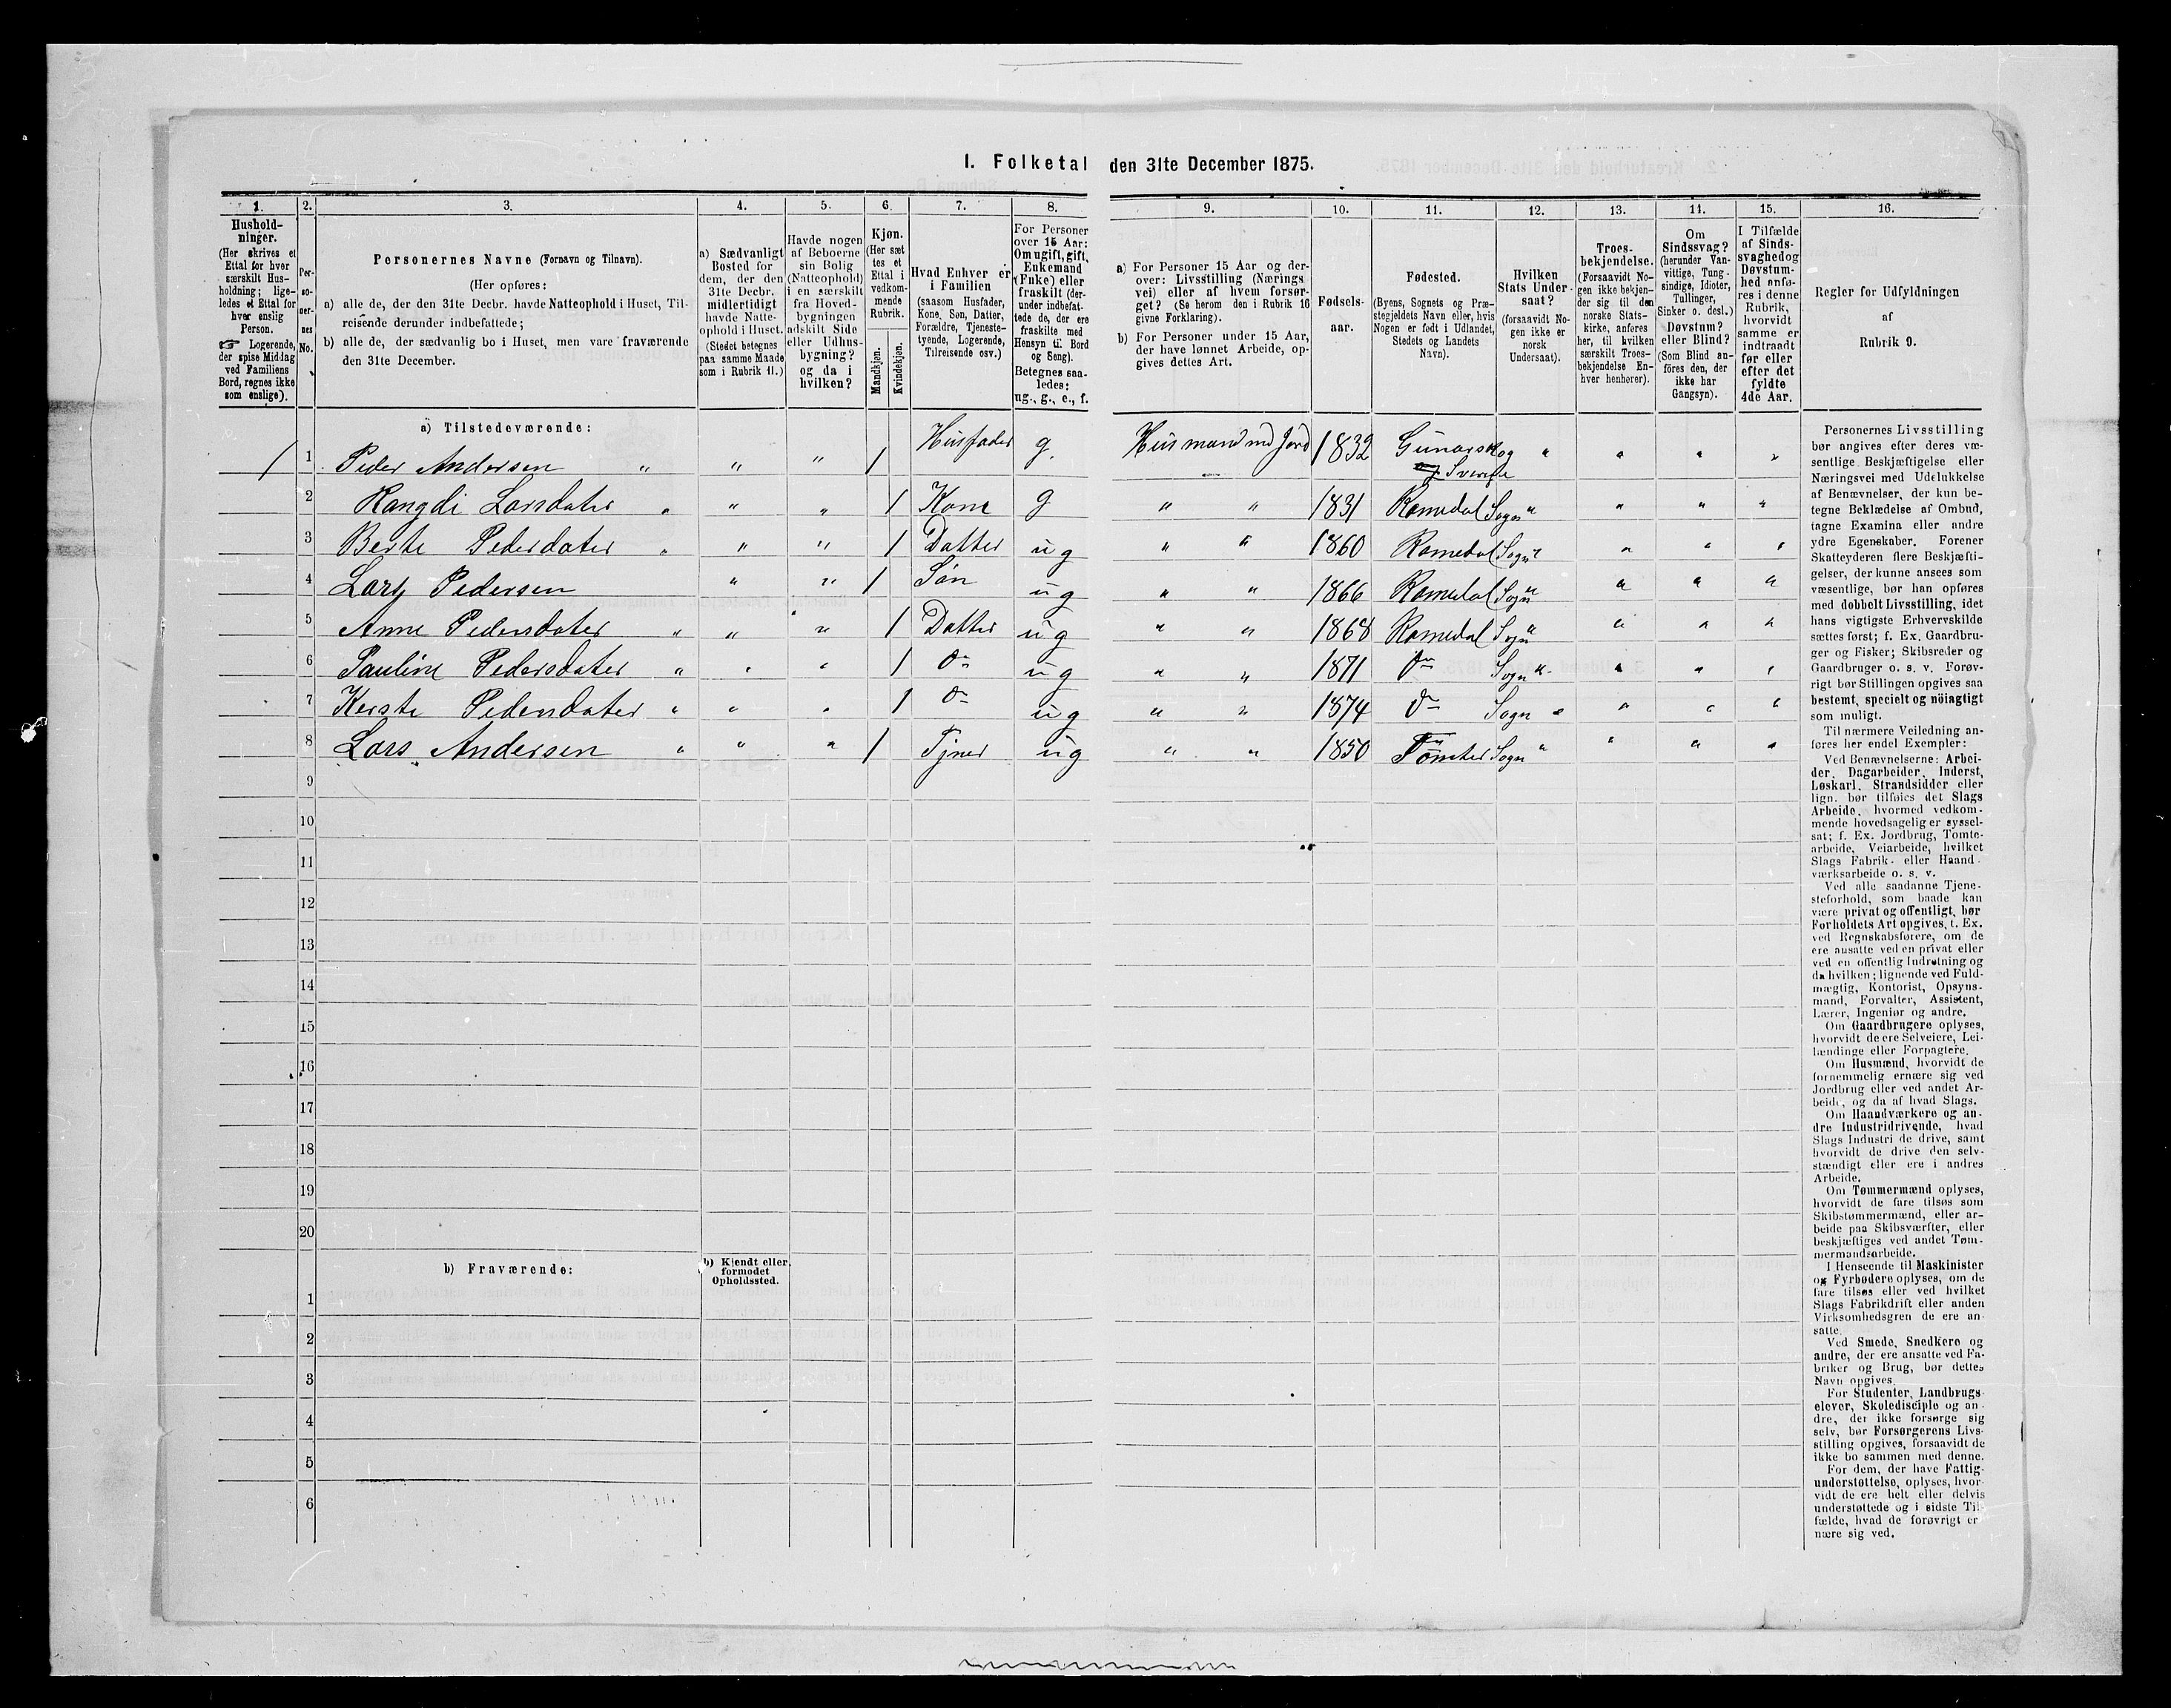 I. Folketal den 31te December 1875.
1. 2. 3. 4. 5. 6. 7. 8. 9. 10. 11. 12. 13. 11. 15. 16.
Hushold-
ninger.
(Her skrives et
Ettal for hver
særskilt Hus-
holdning; lige-
ledes et Ettal for
hver enslig
Person.
☞ Logerende,
der spise Middag
ved Familiens
Bord, regnes ikke
som enslige).
Per-
so-
ner-
nes
No.
Personernes Navne (Fornavn og Tilnavn).
(Her opføres:
a) alle de, der den 31te Decbr. havde Natteophold i Huset, Til-
reisende derunder indbefattede;
b) alle de, der sædvanlig bo i Huset, men vare fraværende
den 31te December.
a) Sædvanligt
Bosted for
dem, der den
31te Decbr.
midlertidigt
havde Natte-
ophold i Huset.
(Stedet betegnes
paa samme Maade
som i Rubrik 11.)
Havde nogen
af Beboerne
sin Bolig
(Natteophold)
i en særskilt
fra Hoved-
bygningen
adskilt Side
eller Udhus-
bygning?
og da i
hvilken?
Kjøn.
(Her sæt
tes et
Ettal i
vedkom-
mende
Rubrik.
Mandkjøn.
Kvindekjøn.
Hvad Enhver er
i Familien
(saasom Husfader,
Kone, Søn, Datter,
Forældre, Tjeneste-
tyende, Logerende,
Tilreisende osv.)
For Personer
over 15 Aar:
Om ugift, gift,
Enkemand
(Enke) eller
fraskilt (der-
under indbefat-
tede de, der ere
fraskilte med
Hensyn til Bord
og Seng).
Betegnes saa-
ledes:
ug., g., e., f.
a) For Personer 15 Aar og der-
over: Livsstilling (Nærings
vei) eller af hvem forsør-
get? (Se herom den i Rubrik 16
givne Forklaring).
b) For Personer under 15 Aar,
der have lønnet Arbeide, op-
gives dettes Art.
Fødsels-
aar.
Fødested.
(Byens, Sognets og Præ-
stegjeldets Navn eller, hvis
Nogen er født i Udlandet,
Stedets og Landets
Navn).
Hvilken
Stats Under-
saat?
(forsaavidt No-
gen ikke er
norsk
Undersaat).
Troes-
bekjendelse.
(Forsaavidt No-
gen ikke bekjen-
der sig til den
norske Stats-
kirke, anføres
her, til hvilken
særskilt Troes-
bekjendelse En-
hver henhører).
Om
Sindssvag?
(herunder Van-
vittige, Tung-
sindige, Idioter,
Tullinger,
Sinker o. desl.)
Døvstum?
eller Blind?
(Som Blind an-
føres den, der
ikke har
Gangsyn).
I Tilfælde
af Sinds-
svaghed og
Døvstum-
hed anfø-
res i denne
Rubrik,
hvorvidt
samme er
indtraadt
før eller
efter det
fyldte
4de Aar.
Regler for Udfyldningen
af
Rubrik 9.
a) Tilstedeværende:
1 1 Peder Andersen " " " 1 Husfader g. Husmand md Jord 1832 Gunarskog " " " "
Sverge
2 Rangdi Larsdater " " " 1 Kone g " " 1831 Romedal Sogn " " " "
3 Berte Pedersdater " " " 1 Datter ug " " 1860 Romedal Sogn " " " "
4 Lars Pedersen " " 1 Søn ug " " 1866 Romedal Sogn " " " "
5 Anne Pedersdater " " " 1 Datter ug " " 1868 Romedal Sogn " " " "
6 Pauline Pedersdater " " " 1 Do ug " " 1871 Do Sogn " " " "
7 Kerste Pedersdater " " " 1 Do ug " " 1874 Do Sogn " " " "
8 Lars Andersen " " " 1 Tjner ug " " 1850 Tomter Sogn " " " "
9
10
11
12
13
14
15
16
17
18
19
20
b) Fraværende:
b) Kjendt eller
formodet
Opholdssted.
1
2
3
4
5
6
Personernes Livsstilling
bør angives efter deres væ-
sentlige Beskjæftigelse eller
Næringsvei med Udelukkelse
af Benævnelser, der kun be-
tegne Beklædelse af Ombud,
tagne Examina eller andre
ydre Egenskaber. Forener
Skatteyderen flere Beskjæfti-
gelser, der kunne ansees som
væsentlige, bør han opføres
med dobbelt Livsstilling, idet
hans vigtigste Erhvervskilde
sættes først; f. Ex. Gaardbru-
ger og Fisker; Skibsreder og
Gaardbruger o. s. v. Forøv-
rigt bør Stillingen opgives saa
bestemt, specielt og nöiagtigt
som muligt.
Til nærmere Veiledning an-
føres her endel Exempler:
Ved Benævnelserne: Arbei-
der, Dagarbeider, Inderst,
Løskarl, Strandsidder eller
lign. bør tilføies det Slags
Arbeide, hvormed vedkom-
mende hovedsagelig er syssel-
sat; f. Ex. Jordbrug, Tomte-
arbeide, Veiarbeide, hvilket
Slags Fabrik- eller Haand-
værksarbeide o. s. v.
Ved alle saadanne Tjene-
steforhold, som baade kan
være privat og offentligt, bør
Forholdets Art opgives, t. Ex.
ved Regnskabsførere, om de
ere ansatte ved en privat eller
ved en offentlig Indretning og
da hvilken; lignende ved Fuld-
mægtig, Kontorist, Opsyns-
mand, Forvalter, Assistent,
Lærer, Ingeniør og andre.
Om Gaardbrugere oplyses,
hvorvidt de ere Selveiere, Lei-
lændinge eller Forpagtere.
Om Husmænd, hvorvidt de
fornemmelig ernære sig ved
Jordbrug eller ved andet Ar-
beide, og da af hvad Slags.
Om Haandværkere og an-
dre Industridrivende, hvad
Slags Industri de drive, samt
hvorvidt de drive den selv-
stændigt eller ere i andres
Arbeide.
Om Tømmermænd oplyses,
hvorvidt de fare tilsøs som
Skibstømmermænd, eller ar-
beide paa Skibsværfter, eller
beskjæftiges ved andet Tøm-
mermandsarbeide.
I Henseende til Maskinister
og Fyrbødere oplyses, om de
fare tilsøs eller ved hvilket
Slags Fabrikdrift eller anden
Virksomhedsgren de ere an-
satte.
Ved Smede, Snedkere og
andre, der ere ansatte ved Fa-
briker og Brug, bør dettes
Navn opgives.
For Studenter, Landbrugs-
elever, Skoledisciple og an-
dre, der ikke forsørge sig
selv, bør Forsørgerens Livs-
stilling opgives, forsaavidt de
ikke bo sammen med denne.
For dem, der have Fattig-
understøttelse, oplyses, hvor-
vidt de ere helt eller delvis
understøttede og i sidste Til-
fælde, hvad de forøvrigt er-
nære sig ved.